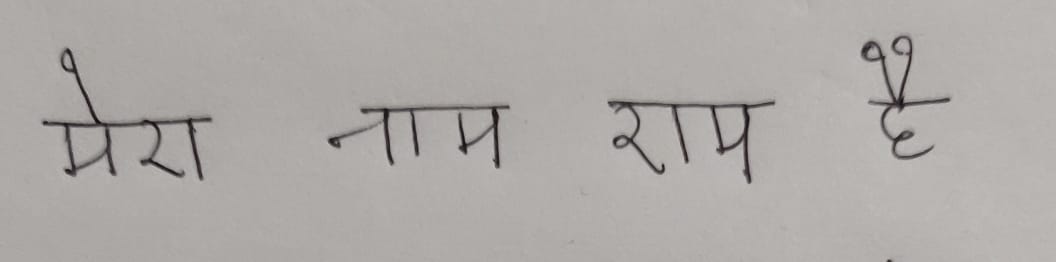 मेरा नाम राम है